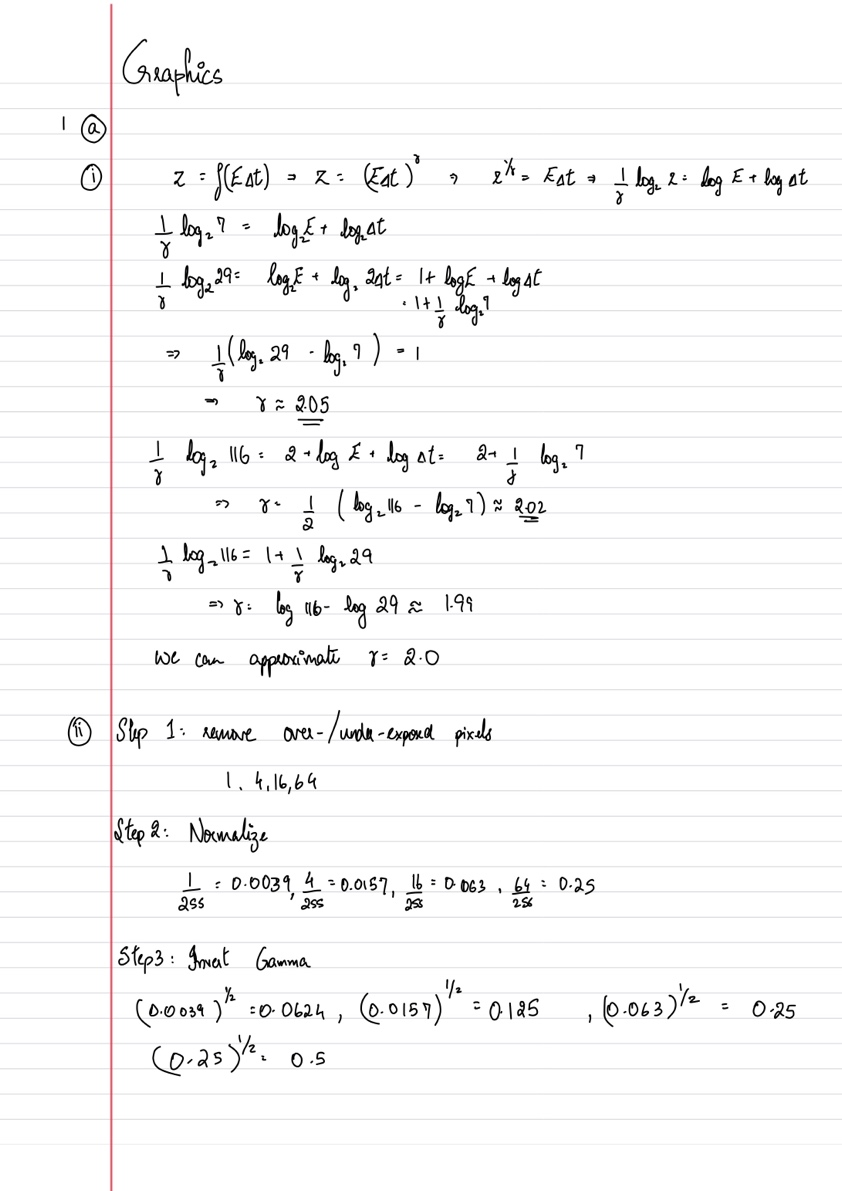 Graphics
1 (a)
(i) Z = f(EΔt) ⇒ Z = (EΔt)^γ ⇒ z^(1/γ) = EΔt ⇒ 1/γ log₂ z = log E + log Δt
1/γ log₂ 7 = log₂E + log₂Δt
1/γ log₂ 29 = log₂E + log₂ 2Δt = 1 + log E + log Δt
= 1 + 1/γ log₂ 7
⇒ 1/γ (log₂ 29 - log₂ 7) = 1
⇒ γ ≈ 2.05
1/γ log₂ 116 = 2 + log E + log Δt = 2 + 1/γ log₂ 7
⇒ γ = 1/2 (log₂ 116 - log₂ 7) ≈ 2.02
1/γ log₂ 116 = 1 + 1/γ log₂ 29
⇒ γ = log 116 - log 29 ≈ 1.99
We can approximate γ = 2.0
(ii) Step 1: remove over-/under-exposed pixels
1, 4, 16, 64
Step 2: Normalize
1/255 = 0.0039, 4/255 = 0.0157, 16/255 = 0.063, 64/256 = 0.25
Step 3: Invert Gamma
(0.0039)^1/2 = 0.0624, (0.0157)^1/2 = 0.125, (0.063)^1/2 = 0.25
(0.25)^1/2 = 0.5